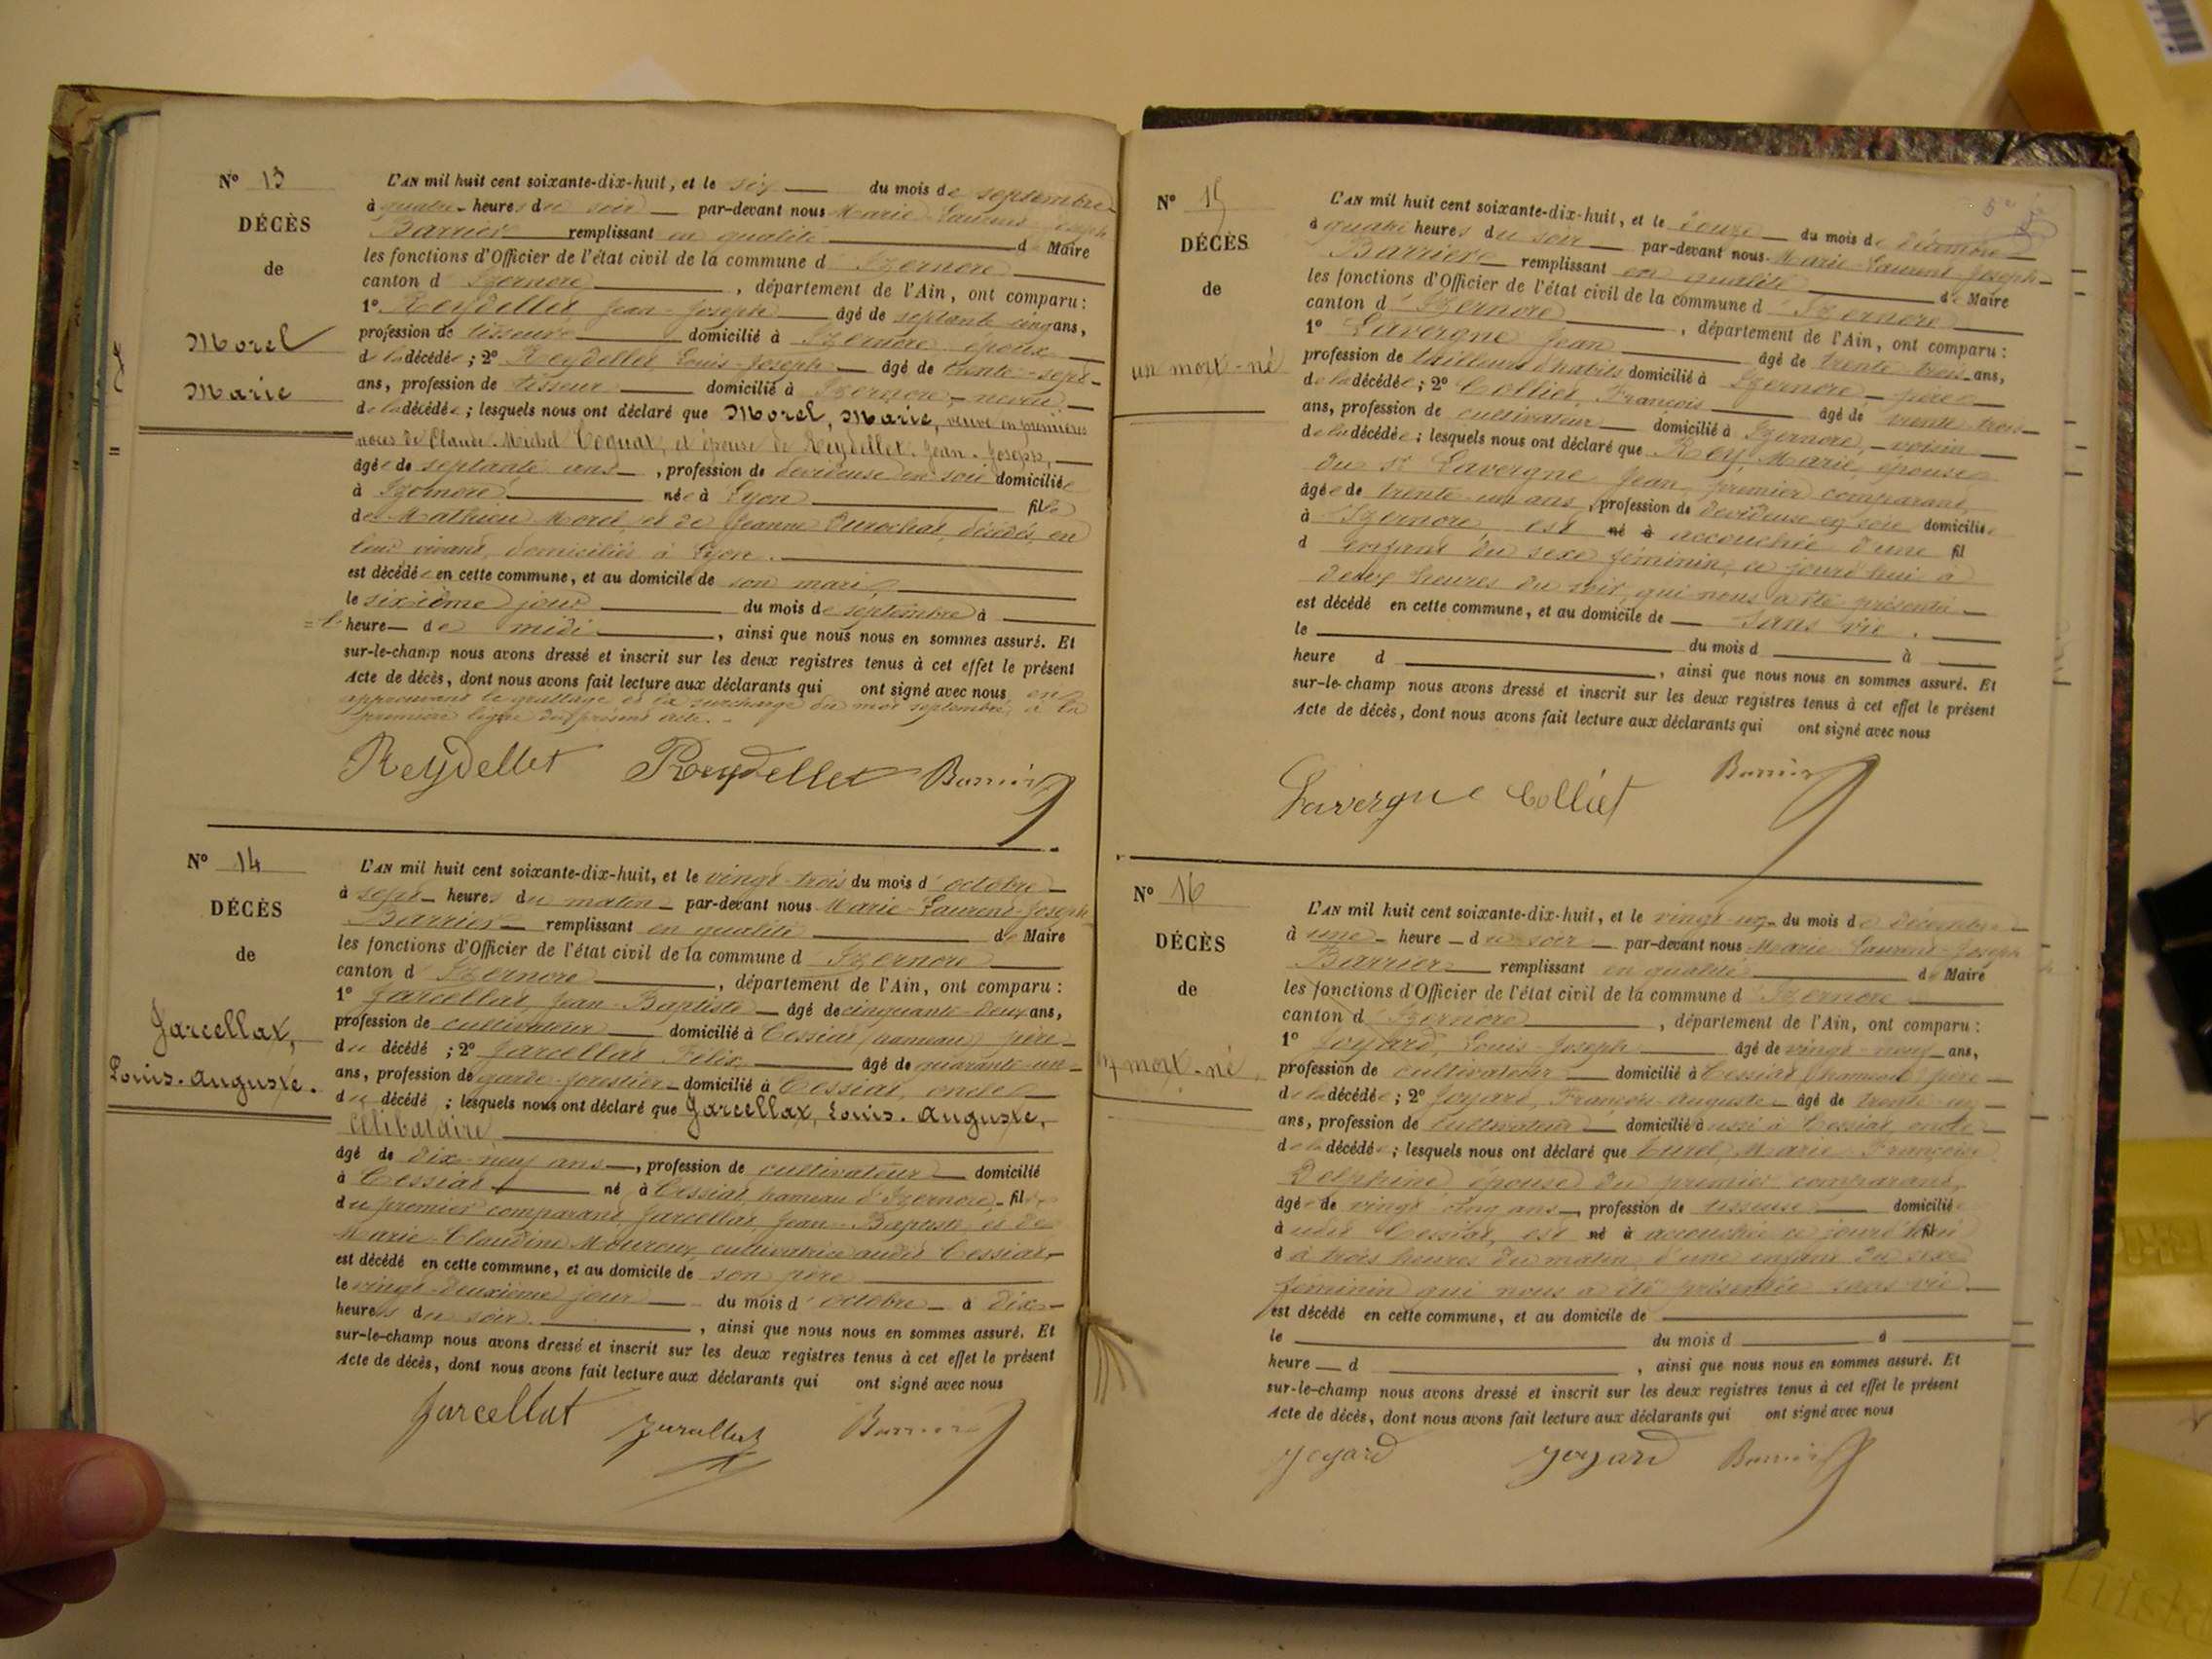 N° 13
DÉCÈS
de
Morel
Marie
L'AN mil huit cent soixante-dix-huit, et le six du mois de septembre
à quatre heures du soir par-devant nous Marie-Laurent-Joseph
Barrier remplissant en qualité de Maire
les fonctions d'Officier de l'état civil de la commune d'Izernore
canton d'Izernore, département de l'Ain, ont comparu :
1° Reydellet Jean-Joseph âgé de septante cinq ans,
profession de tisseur domicilié à Izernore époux
de la décédée ; 2° Reydellet Louis-Joseph âgé de trente-sept
ans, profession de tisseur domicilié à Izernore, neveu
de la décédée ; lesquels nous ont déclaré que Morel, Marie, veuve en premières
noces de Claude-Michel Coquat, et épouse de Reydellet Jean-Joseph,
âgée de septante ans, profession de dévideuse en soie domiciliée
à Izernore née à Lyon fille
de Mathieu Morel, et de Jeanne décédés, en
leur vivant, domiciliés à Lyon.
est décédée en cette commune, et au domicile de son mari,
le sixième jour du mois de septembre à
l'heure de midi, ainsi que nous nous en sommes assuré. Et
sur-le-champ nous avons dressé et inscrit sur les deux registres tenus à cet effet le présent
Acte de décès, dont nous avons fait lecture aux déclarants qui ont signé avec nous en
approuvant le grattage et la surcharge du mot septembre à la
première ligne du présent acte.
Reydellet Reydellet Barrier
N° 14
DÉCÈS
de
Jarcellat,
Louis-Auguste.
L'AN mil huit cent soixante-dix-huit, et le vingt-trois du mois d'octobre
à sept heures du matin par-devant nous Marie-Laurent-Joseph
Barrier remplissant en qualité de Maire
les fonctions d'Officier de l'état civil de la commune d'Izernore
canton d'Izernore, département de l'Ain, ont comparu :
1° Jarcellat, Jean-Baptiste âgé de cinquante-deux ans,
profession de cultivateur domicilié à Cessiat (hameau) père
du décédé ; 2° Jarcellat Félix, âgé de quarante-un
ans, profession de garde-forestier domicilié à Cessiat, oncle
du décédé ; lesquels nous ont déclaré que Jarcellat, Louis-Auguste,
célibataire,
âgé de dix-neuf ans, profession de cultivateur domicilié
à Cessiat né à Cessiat hameau d'Izernore, fils
du premier comparant Jarcellat, Jean-Baptiste, et de
Marie-Claudine Mouroux, cultivatrice audit Cessiat,
est décédé en cette commune, et au domicile de son père
le vingt-deuxième jour du mois d'octobre à dix
heures du soir, ainsi que nous nous en sommes assuré. Et
sur-le-champ nous avons dressé et inscrit sur les deux registres tenus à cet effet le présent
Acte de décès, dont nous avons fait lecture aux déclarants qui ont signé avec nous
Jarcellat Jarcellat Barrier
N° 15
DÉCÈS
de
un mort-né
L'AN mil huit cent soixante-dix-huit, et le douze du mois de décembre
à quatre heures du soir par-devant nous Marie-Laurent-Joseph
Barrier remplissant en qualité de Maire
les fonctions d'Officier de l'état civil de la commune d'Izernore
canton d'Izernore, département de l'Ain, ont comparu :
1° Lavergne Jean âgé de trente-trois ans,
profession de tailleur d'habits domicilié à Izernore père
de la décédée ; 2° Colliet François âgé de trente-trois
ans, profession de cultivateur domicilié à Izernore, voisin
de la décédée ; lesquels nous ont déclaré que Rey, Marie, épouse
du Sr Lavergne Jean, premier comparant,
âgée de trente-un ans, profession de dévideuse en soie domiciliée
à Izernore, est né à accouchée d'une fil
d enfant du sexe féminin, ce jourd'hui à
deux heures du soir, qui nous a été présenté
est décédé en cette commune, et au domicile de sans vie.
le du mois d à
heure d, ainsi que nous nous en sommes assuré. Et
sur-le-champ nous avons dressé et inscrit sur les deux registres tenus à cet effet le présent
Acte de décès, dont nous avons fait lecture aux déclarants qui ont signé avec nous
Lavergne Colliet Barrier
N° 16
DÉCÈS
de
un mort-né,
L'AN mil huit cent soixante-dix-huit, et le vingt-un du mois de décembre
à une heure du soir par-devant nous Marie-Laurent-Joseph
Barrier remplissant en qualité de Maire
les fonctions d'Officier de l'état civil de la commune d'Izernore
canton d'Izernore, département de l'Ain, ont comparu :
1° Joyard, Louis-Joseph âgé de vingt-neuf ans,
profession de cultivateur domicilié à Cessiat (hameau) père
de la décédée ; 2° Joyard, François-Auguste âgé de trente-un
ans, profession de cultivateur domicilié aussi à Cessiat, oncle
de la décédée ; lesquels nous ont déclaré que Curel, Marie-Françoise
Delphine épouse du premier comparant,
âgée de vingt-cinq ans, profession de tisseuse domiciliée
à udit Cessiat, est né à accouchée ce jourd'hui fil
d à trois heures du matin, d'une enfant du sexe
féminin qui nous a été présentée sans vie.
est décédé en cette commune, et au domicile de
le du mois d à
heure d, ainsi que nous nous en sommes assuré. Et
sur-le-champ nous avons dressé et inscrit sur les deux registres tenus à cet effet le présent
Acte de décès, dont nous avons fait lecture aux déclarants qui ont signé avec nous
Joyard Joyard Barrier